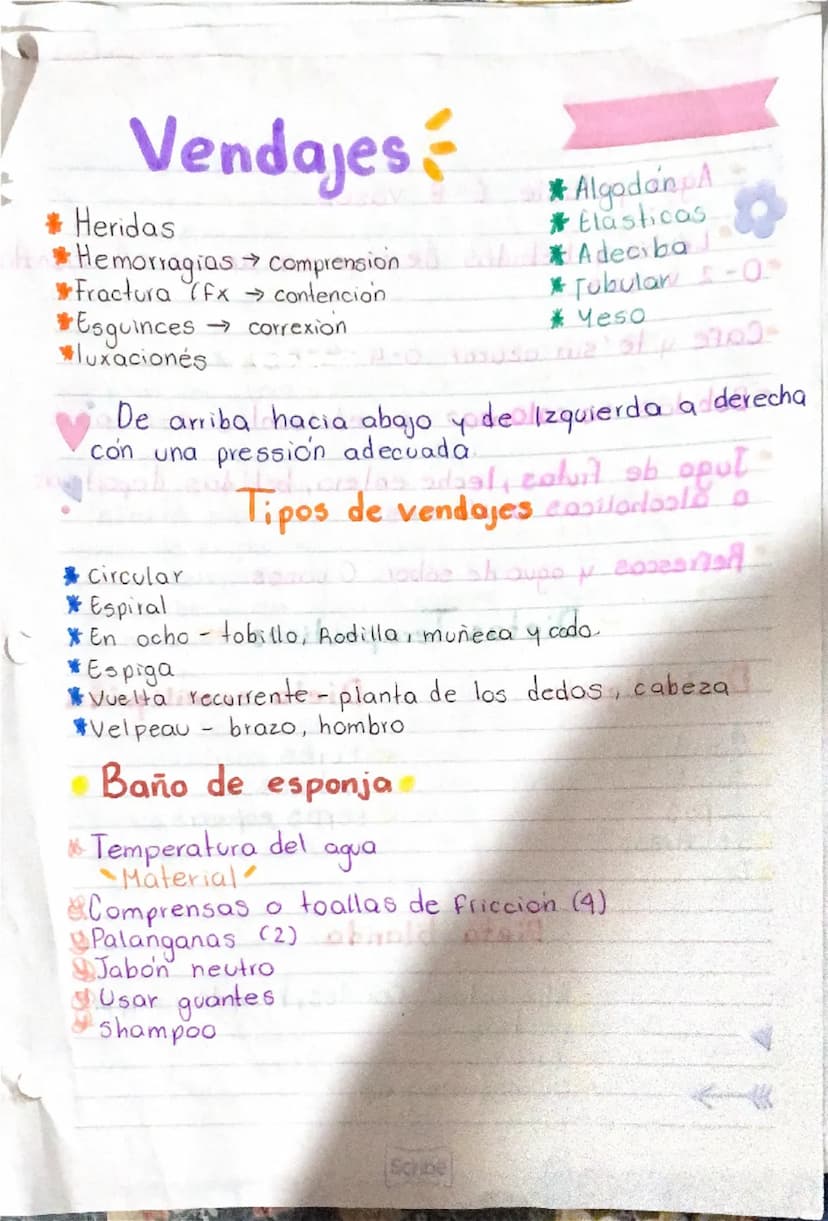 Vendajes
* Heridas
* Hemorragias → comprensión
* Fractura (fx → contención
* Esguinces → correxión
* luxacionés
* Algodón
* Elásticas
* Adeciba
* Tubular
* Yeso
De arriba hacia abajo y de Izquierda a derecha
con una pressión adecuada
Tipos de vendajes
* Circular
* Espiral
* En ocho - tobillo, Rodilla, muñeca y codo
* Espiga
* Vuelta recurrente - planta de los dedos, cabeza
* Velpeau - brazo, hombro
Baño de esponja
* Temperatura del agua
Material
Comprensas o toallas de fricción (4)
Palanganas (2)
Jabón neutro
Usar guantes
Shampoo
Scribe